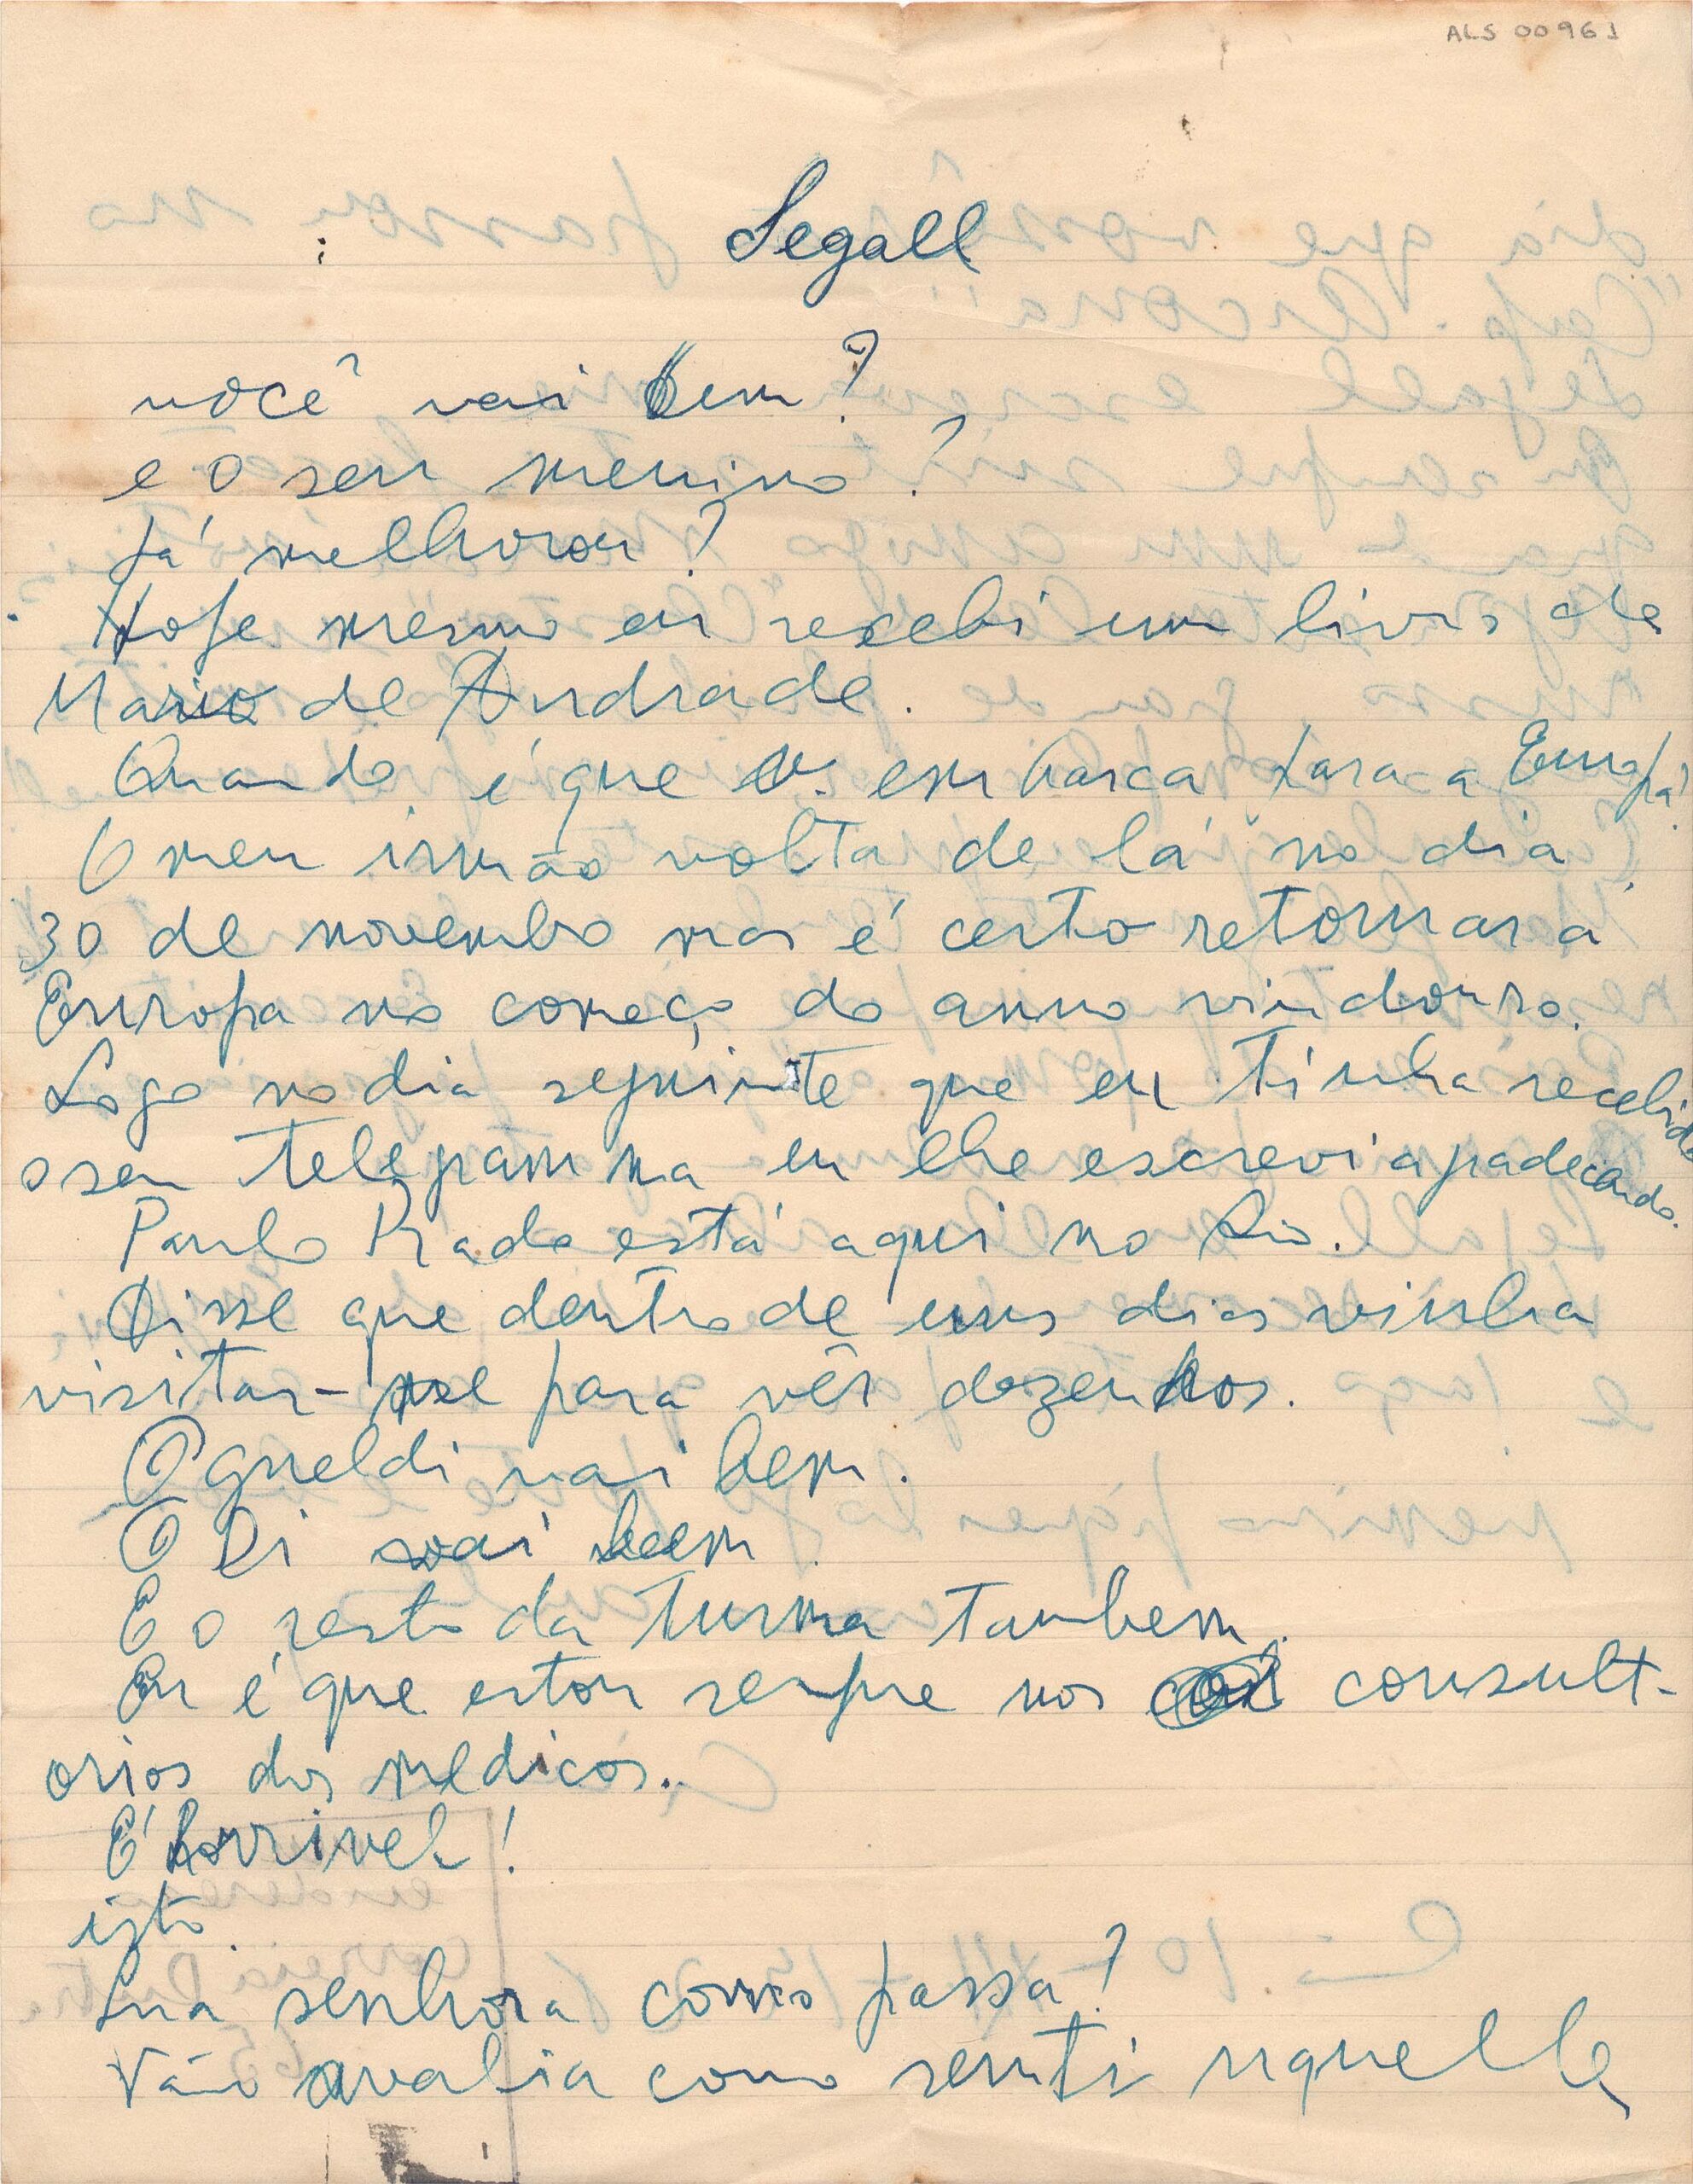 ALS 00961
Segall
você vai bem?
e o seu menino?
Já melhorou?
Hoje mesmo eu recebi um livro de
Mario de Andrade.
Quando é que v. embarca para a Europa?
O meu irmão volta de lá no dia
30 de novembro mas é certo retornar á
Europa no começo do anno vindouro.
Logo no dia seguinte que eu tinha recebido
o seu telegramma eu lhe escrevi agradecendo.
Paulo Prado está aqui no Rio.
Disse que dentro de uns dias vinha
visitar-me para vêr dezenhos.
O gueldi vai bem.
O Di vai bem.
E o resto da turma tambem.
Eu é que estou sempre nos consult-
orios dos medicos..
É horrivel!
isto.
Sua senhora como passa?
Não avalia como senti naquelle